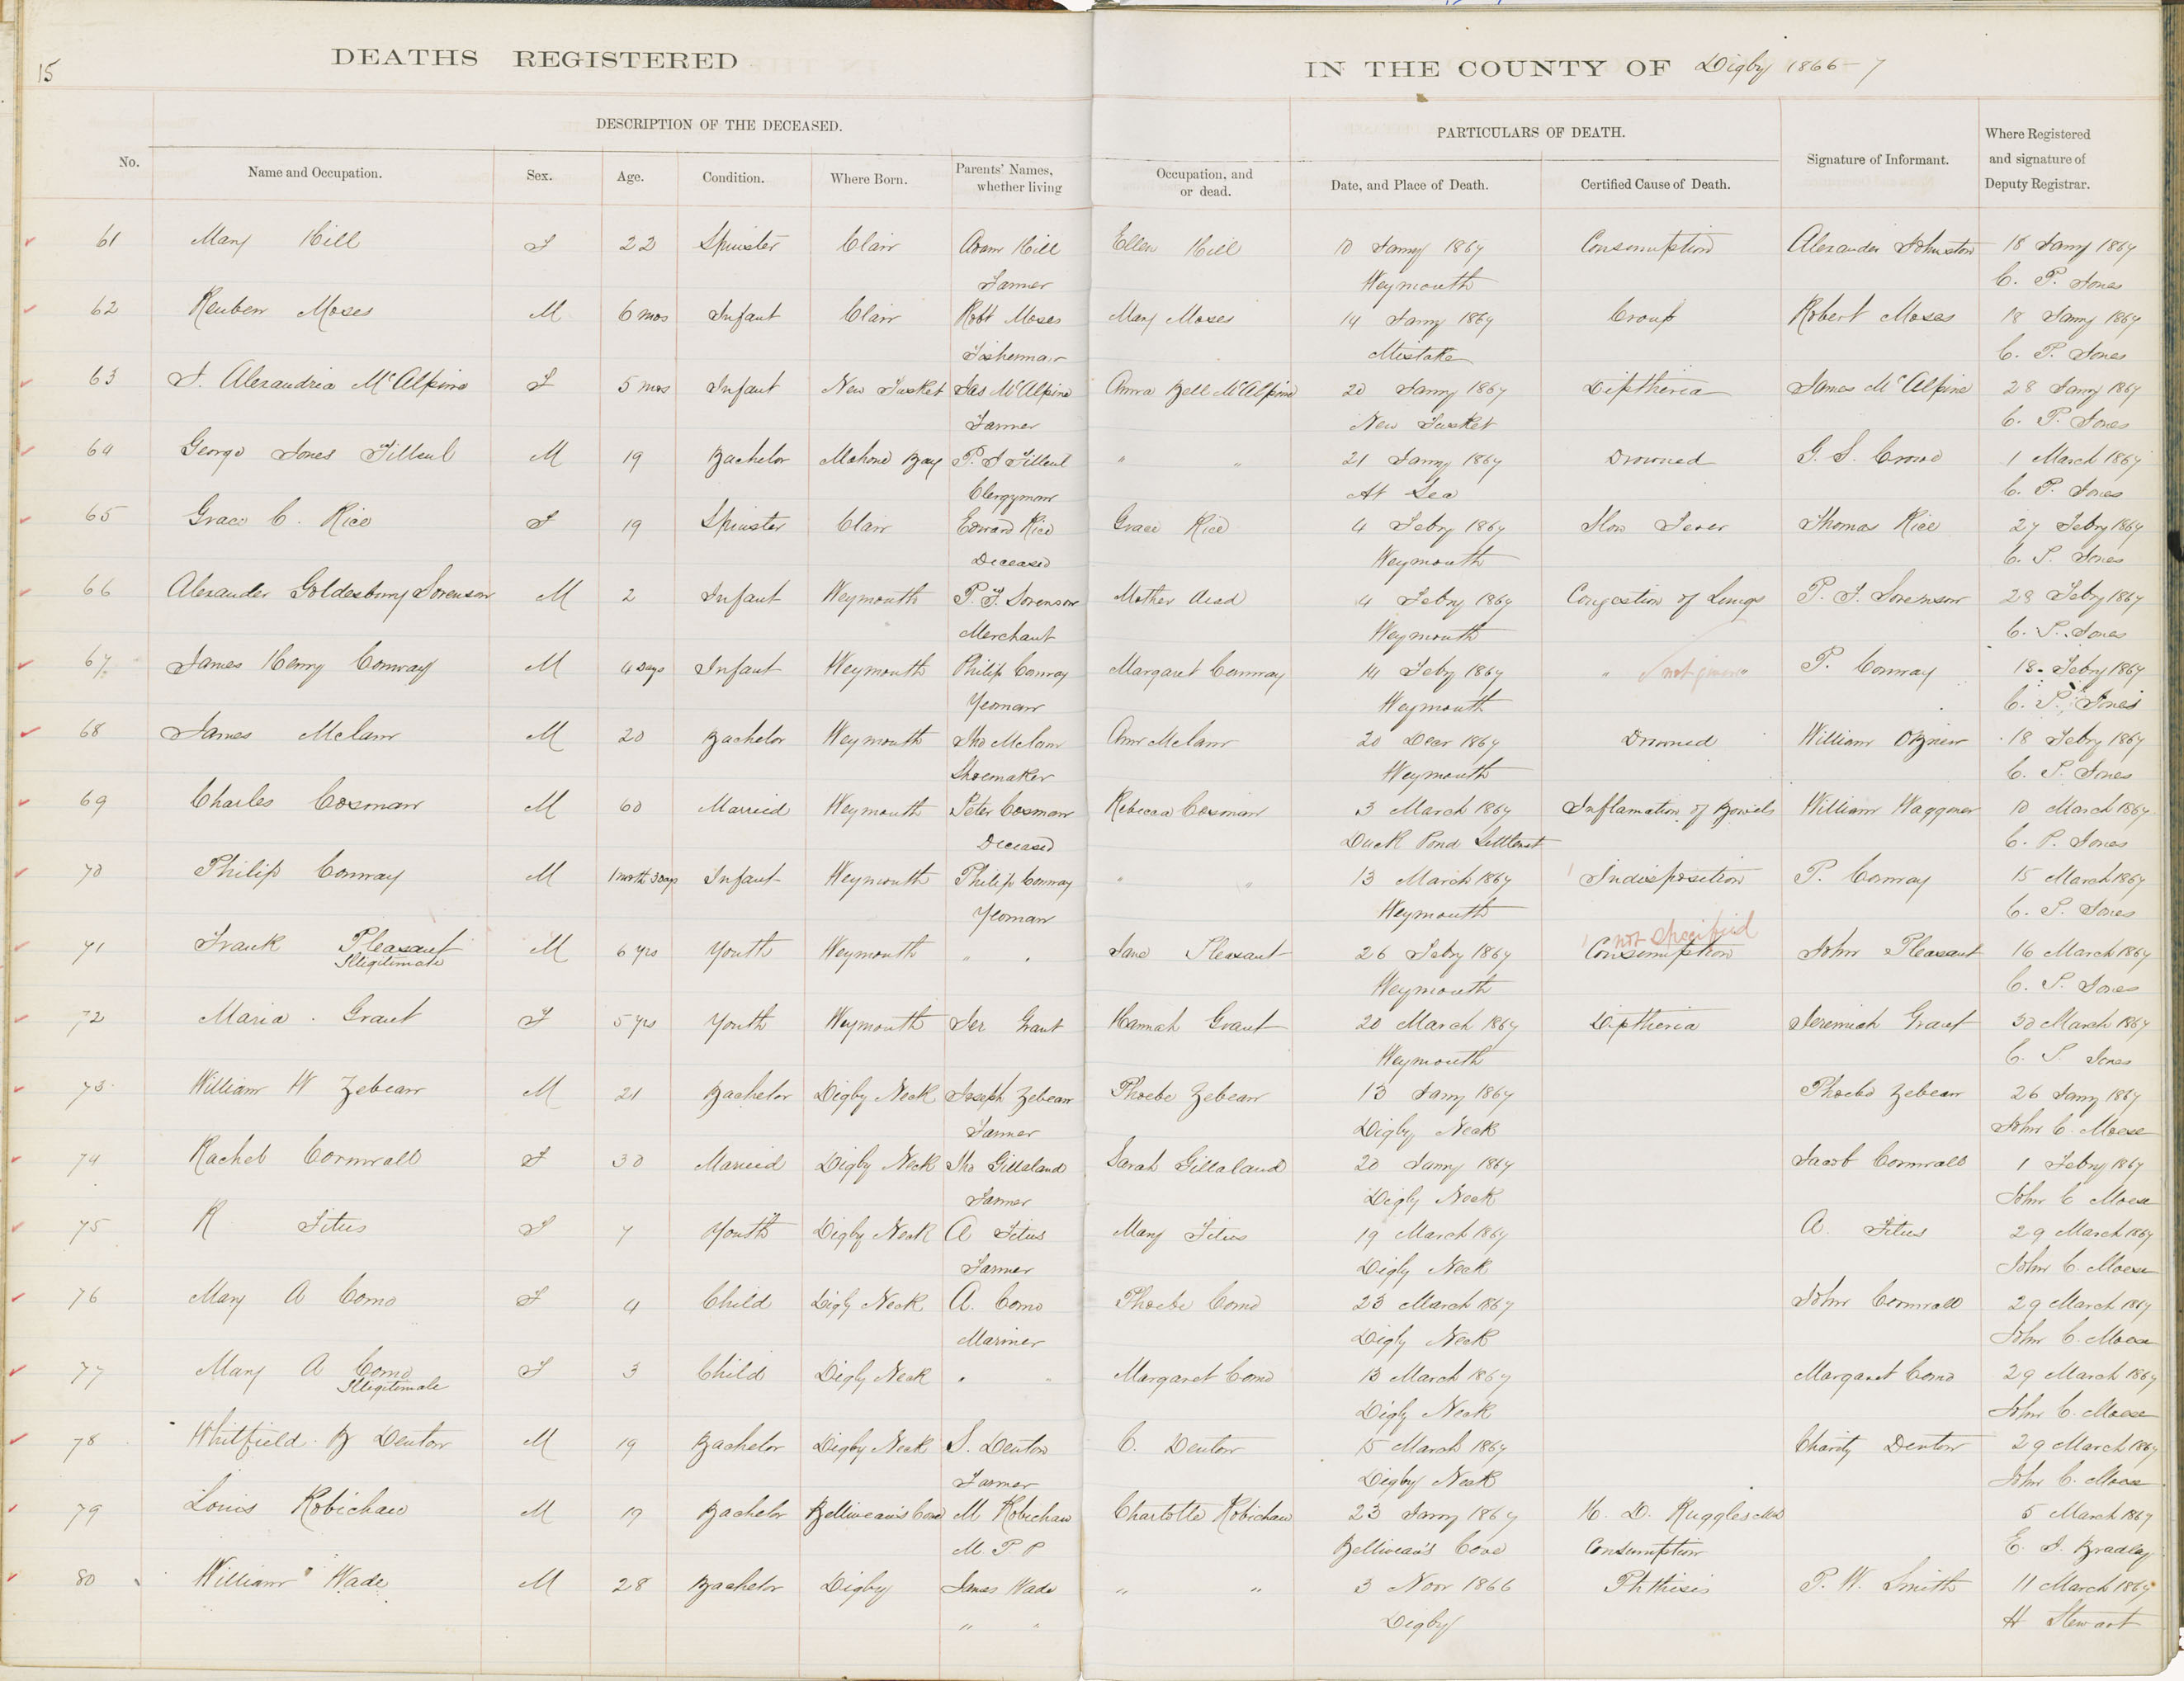 15
DEATHS REGISTERED
IN THE COUNTY OF Digby 1866-7
DESCRIPTION OF THE DECEASED.
PARTICULARS OF DEATH.
No. Name and Occupation. Sex. Age. Condition. Where Born. Parents' Names, whether living Occupation, and or dead. Date, and Place of Death. Certified Cause of Death. Signature of Informant. Where Registered and signature of Deputy Registrar.
61 Mary Hill F 22 Spinster Clair Adam Hill Ellen Hill 10 Jany 1867 Consumption Alexander Johnston 18 Jany 1867
Farmer Weymouth C. P. Jones
62 Reuben Moses M 6 mos Infant Clair Robt Moses Mary Moses 14 Jany 1867 Croup Robert Moses 18 Jany 1867
Fisherman Mistake C. P. Jones
63 J. Alexandria McAlpine F 5 mos Infant New Tusket Jas McAlpine Anna Bell McAlpine 20 Jany 1867 Diptheria James McAlpine 28 Jany 1867
Farmer New Tusket C. P. Jones
64 George Jones Filleul M 19 Bachelor Mahone Bay P. J Filleul " " 21 Jany 1867 Drowned 1 March 1867
Clergyman At Sea C. P. Jones
65 Grace C. Rice F 19 Spinster Clair Edward Rice Grace Rice 4 Febry 1867 Slow Fever Thomas Rice 27 Febry 1867
Deceased Weymouth C. P. Jones
66 Alexander Goldesbury Sorenson M 2 Infant Weymouth P. F. Sorenson Mother dead 4 Febry 1867 Congestion of Lungs P. F. Sorenson 28 Febry 1867
Merchant Weymouth C. P. Jones
67 James Henry Conway M 4 Days Infant Weymouth Philip Conway Margaret Conway 14 Feby 1867 " not given " P. Conway 18 Febry 1867
Yeoman Weymouth C. P. Jones
68 James Mclann M 20 Bachelor Weymouth Tho Mclann Ann Mclann 20 Decr 1867 Drowned William 18 Febry 1867
Shoemaker Weymouth C. P. Jones
69 Charles Cosman M 60 Married Weymouth Peter Cosman Rebecca Cosman 3 March 1867 Inflamation of Bowels William Waggoner 10 March 1867
Deceased Duck Pond Settlemt C. P. Jones
70 Philip Conway M 1 month 3 Days Infant Weymouth Philip Conway " " 13 March 1867 Indisposition P. Conway 15 March 1867
Yeoman Weymouth C. P. Jones
not specified
71 Frank Pleasant M 6 yrs Youth Weymouth " " Jane Pleasant 26 Febry 1867 Consumption John Pleasant 16 March 1867
Illegitimate Weymouth C. P. Jones
72 Maria Grant F 5 yrs Youth Weymouth Jer Grant Hannah Grant 20 March 1867 Diptheria Jeremiah Grant 30 March 1867
Weymouth C. P. Jones
73 William W Zebean M 21 Bachelor Digby Neck Joseph Zebean Phoebe Zebean 13 Jany 1867 Phoebe Zebean 26 Jany 1867
Farmer Digby Neck John C. Morse
74 Rachel Cornwall F 30 Married Digby Neck Tho Gillaland Sarah Gillaland 20 Jany 1867 Jacob Cornwall 1 Febry 1867
Farmer Digby Neck John C Morse
75 R Titus F 7 Youth Digby Neck A Titus Mary Titus 19 March 1867 A. Titus 29 March 1867
Farmer Digby Neck John C. Morse
76 Mary A Como F 4 Child Digby Neck A. Como Phoebe Como 23 March 1867 John Cornwall 29 March 1867
Mariner Digby Neck John C. Morse
77 Mary A Como F 3 Child Digby Neck " " Margaret Como 13 March 1867 Margaret Como 29 March 1867
Illegitimate Digby Neck John C. Morse
78 Whitfield B Denton M 19 Bachelor Digby Neck S. Denton C. Denton 15 March 1867 Charity Denton 29 March 1867
Farmer Digby Neck John C. Morse
79 Louis Robichau M 19 Bachelor Belliveau's Cove M Robichau Charlotte Robichau 23 Jany 1867 H. D. Ruggles MD 5 March 1867
M. P. P Belliveau's Cove Consumption E. J. Bradley
80 William Wade M 28 Bachelor Digby James Wade " " 3 Novr 1866 Phthisis P. W. Smith 11 March 1867
" " Digby H Stewart